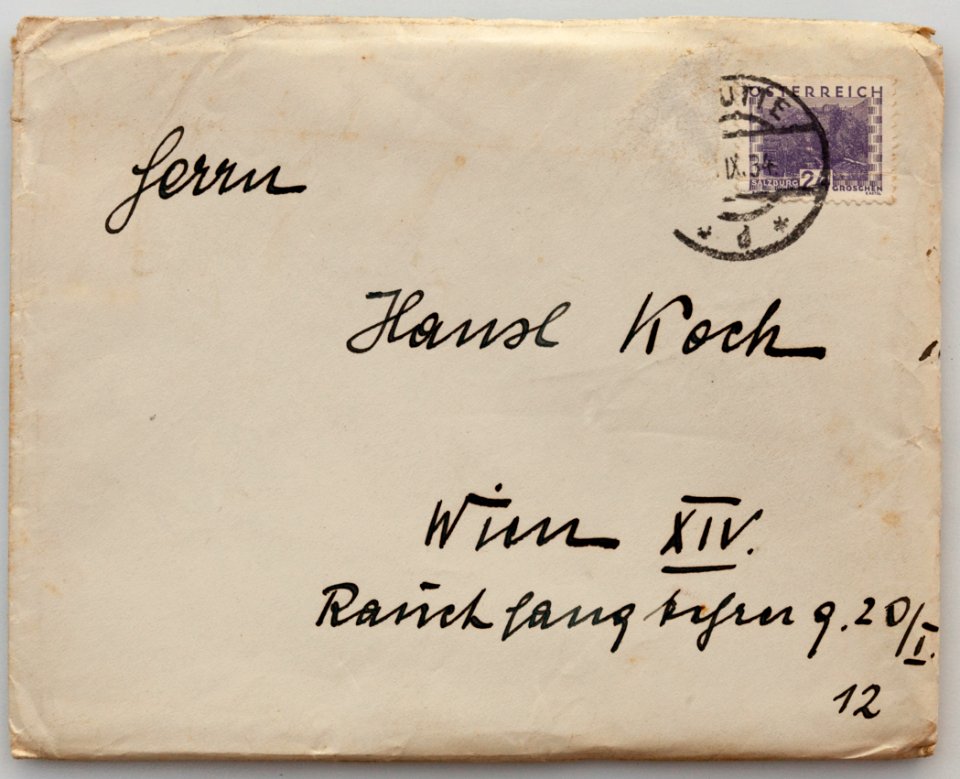 ÖSTERREICH
IX.34
SALZBURG 2 GROSCHEN
Herrn
Hansl Koch
Wien XIV.
Rauchfangkehrer g. 20/I.
12